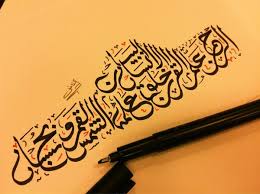 الرحمن علم القرآن خلق الإنسان علمه البيان الشمس والقمر بحسبان